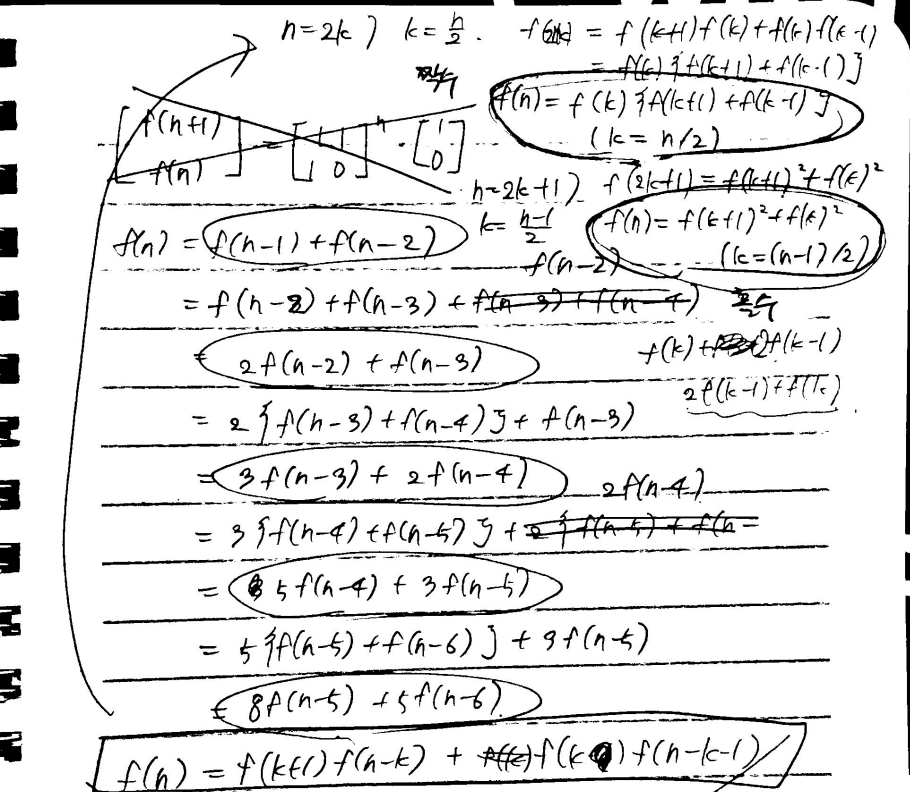 n=2k) k=n/2. f(2k) = f(k+1)f(k)+f(k)f(k-1)
짝수 = f(k){f(k+1)+f(k-1)}
f(n)=f(k){f(k+1)+f(k-1)}
(k=n/2)
[f(n+1) f(n)] = [1 1 1 0]^n · [1 0]
n=2k+1) f(2k+1)=f(k+1)²+f(k)²
k=n-1/2 f(n)=f(k+1)²+f(k)²
(k=(n-1)/2)
홀수
f(k)+f(k-1)
2f(k-1)+f(k)
f(n) = f(n-1)+f(n-2)
f(n-2)
= f(n-2)+f(n-3)+f(n-3)+f(n-4)
= 2f(n-2)+f(n-3)
= 2{f(n-3)+f(n-4)}+f(n-3)
= 3f(n-3)+2f(n-4)
2f(n-4)
= 3{f(n-4)+f(n-5)}+2{f(n-5)+f(n-
= 5f(n-4)+3f(n-5)
= 5{f(n-5)+f(n-6)}+3f(n-5)
= 8f(n-5)+5f(n-6)
f(n) = f(k+1)f(n-k)+f(k)f(k)f(n-k-1)